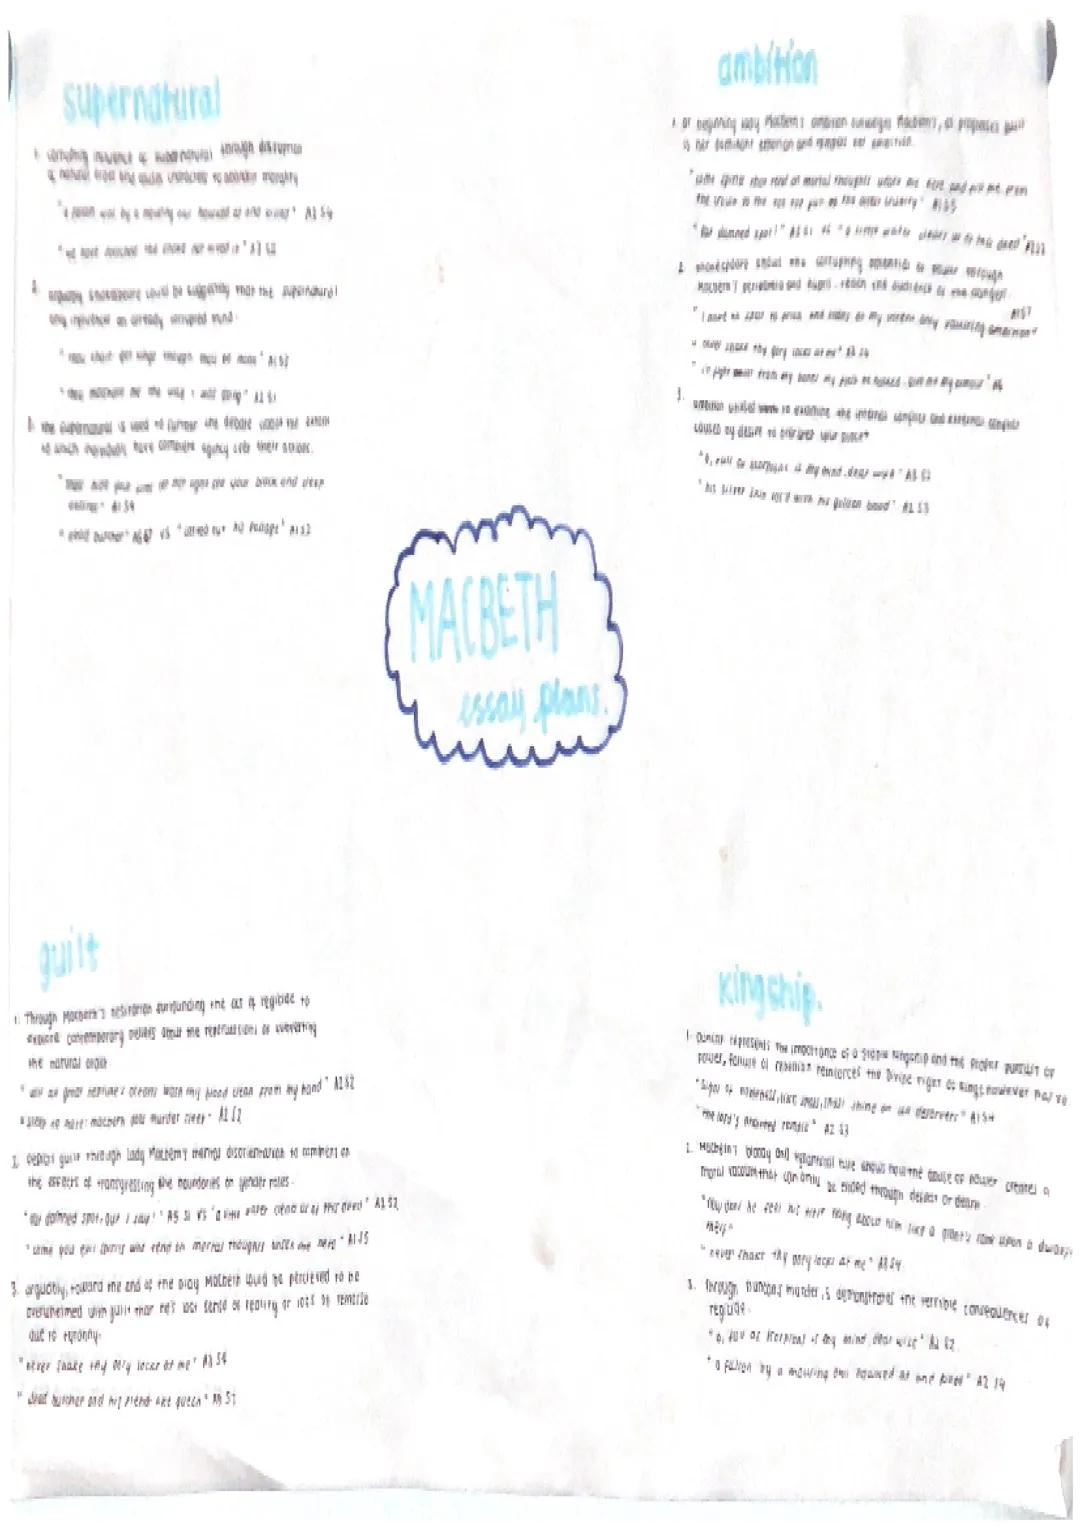 supernatural
1. corrupting influence of supernatural through disruption
of natural order and causes characters to abandon morality
"a falcon by a mousing owl hawked at and killed" A2 S4
"we have scorched the snake not killed it" A3 S2
2. arguably shakespeare could be suggesting that the supernatural
only influence an already corrupted mind.
"thou shalt get kings though thou be none" A1 S3
A2 S1
3. the supernatural is used to further the debate under the extent
to which individuals have complete agency over their actions.
"stars hide your fires let not light see your black and deep
desires" A1 S4
"dead butcher" vs "carved out his passage" A1 S2
ambition
1. at beginning lady Macbeth's ambition outweighs Macbeth's, as progresses guilt
is her dominant emotion and
"come spirits that tend on mortal thoughts unsex me here and fill me from
the crown to the toe top full of the direst cruelty" A1 S5
"Out damned spot!" A5 S1 vs "a little water clears us of this deed" A2 S2
2. shakespeare shows the corrupting potential of power through
Macbeth's
"I have no spur to prick the sides of my intent only vaulting ambition" A1 S7
"never shake thy gory locks at me" A3 S4
"i'll fight from my bones my flesh be hacked. give me my armour" A5
3. ambition to examine the internal conflicts and external conflicts
caused by desire to
"o, full of scorpions is my mind, dear wife" A3 S2
"his silver skin lac'd with his golden blood" A2 S3
MACBETH
essay plans.
guilt
1. Through Macbeth's hesitation surrounding the act of regicide to
explore contemporary beliefs about the repercussions of
the natural order
"will all great neptune's oceans wash this blood clean from my hand" A2 S2
"sleep no more: macbeth does murder sleep" A2 S2
2. depicts guilt through lady Macbeth's mental disorientation to comment on
the effects of transgressing the boundaries on gender roles.
"out damned spot, out I say!" A5 S1 vs "a little water clears us of this deed" A2 S2
"come you evil spirits who tend on mortal thoughts unsex me here" A1 S5
3. arguably, toward the end of the play Macbeth could be perceived to be
overwhelmed with guilt that he's lost sense of reality or loss of remorse
due to tyranny.
"never shake thy gory locks at me" A3 S4
"dead butcher and his fiend-like queen"
kingship.
1. Duncan represents the importance of a stable kingship and the proper pursuit of
power, reinforces the Divine right of kings
"signs of nobleness, like stars, shall shine on all deservers" A1 S4
"the lord's anointed temple" A2 S3
2. Macbeth's bloody and tyrannical rule shows how the abuse of power creates a
moral vacuum that can only be ended through
"Now does he feel his title hang about him like a giant's robe upon a dwarfish
thief"
"never shake thy gory locks at me" A3 S4
3. through Duncan's murder, S demonstrates the terrible consequences of
regicide.
"o, full of scorpions is my mind, dear wife"
"a falcon by a mousing owl hawked at and killed" A2 S4